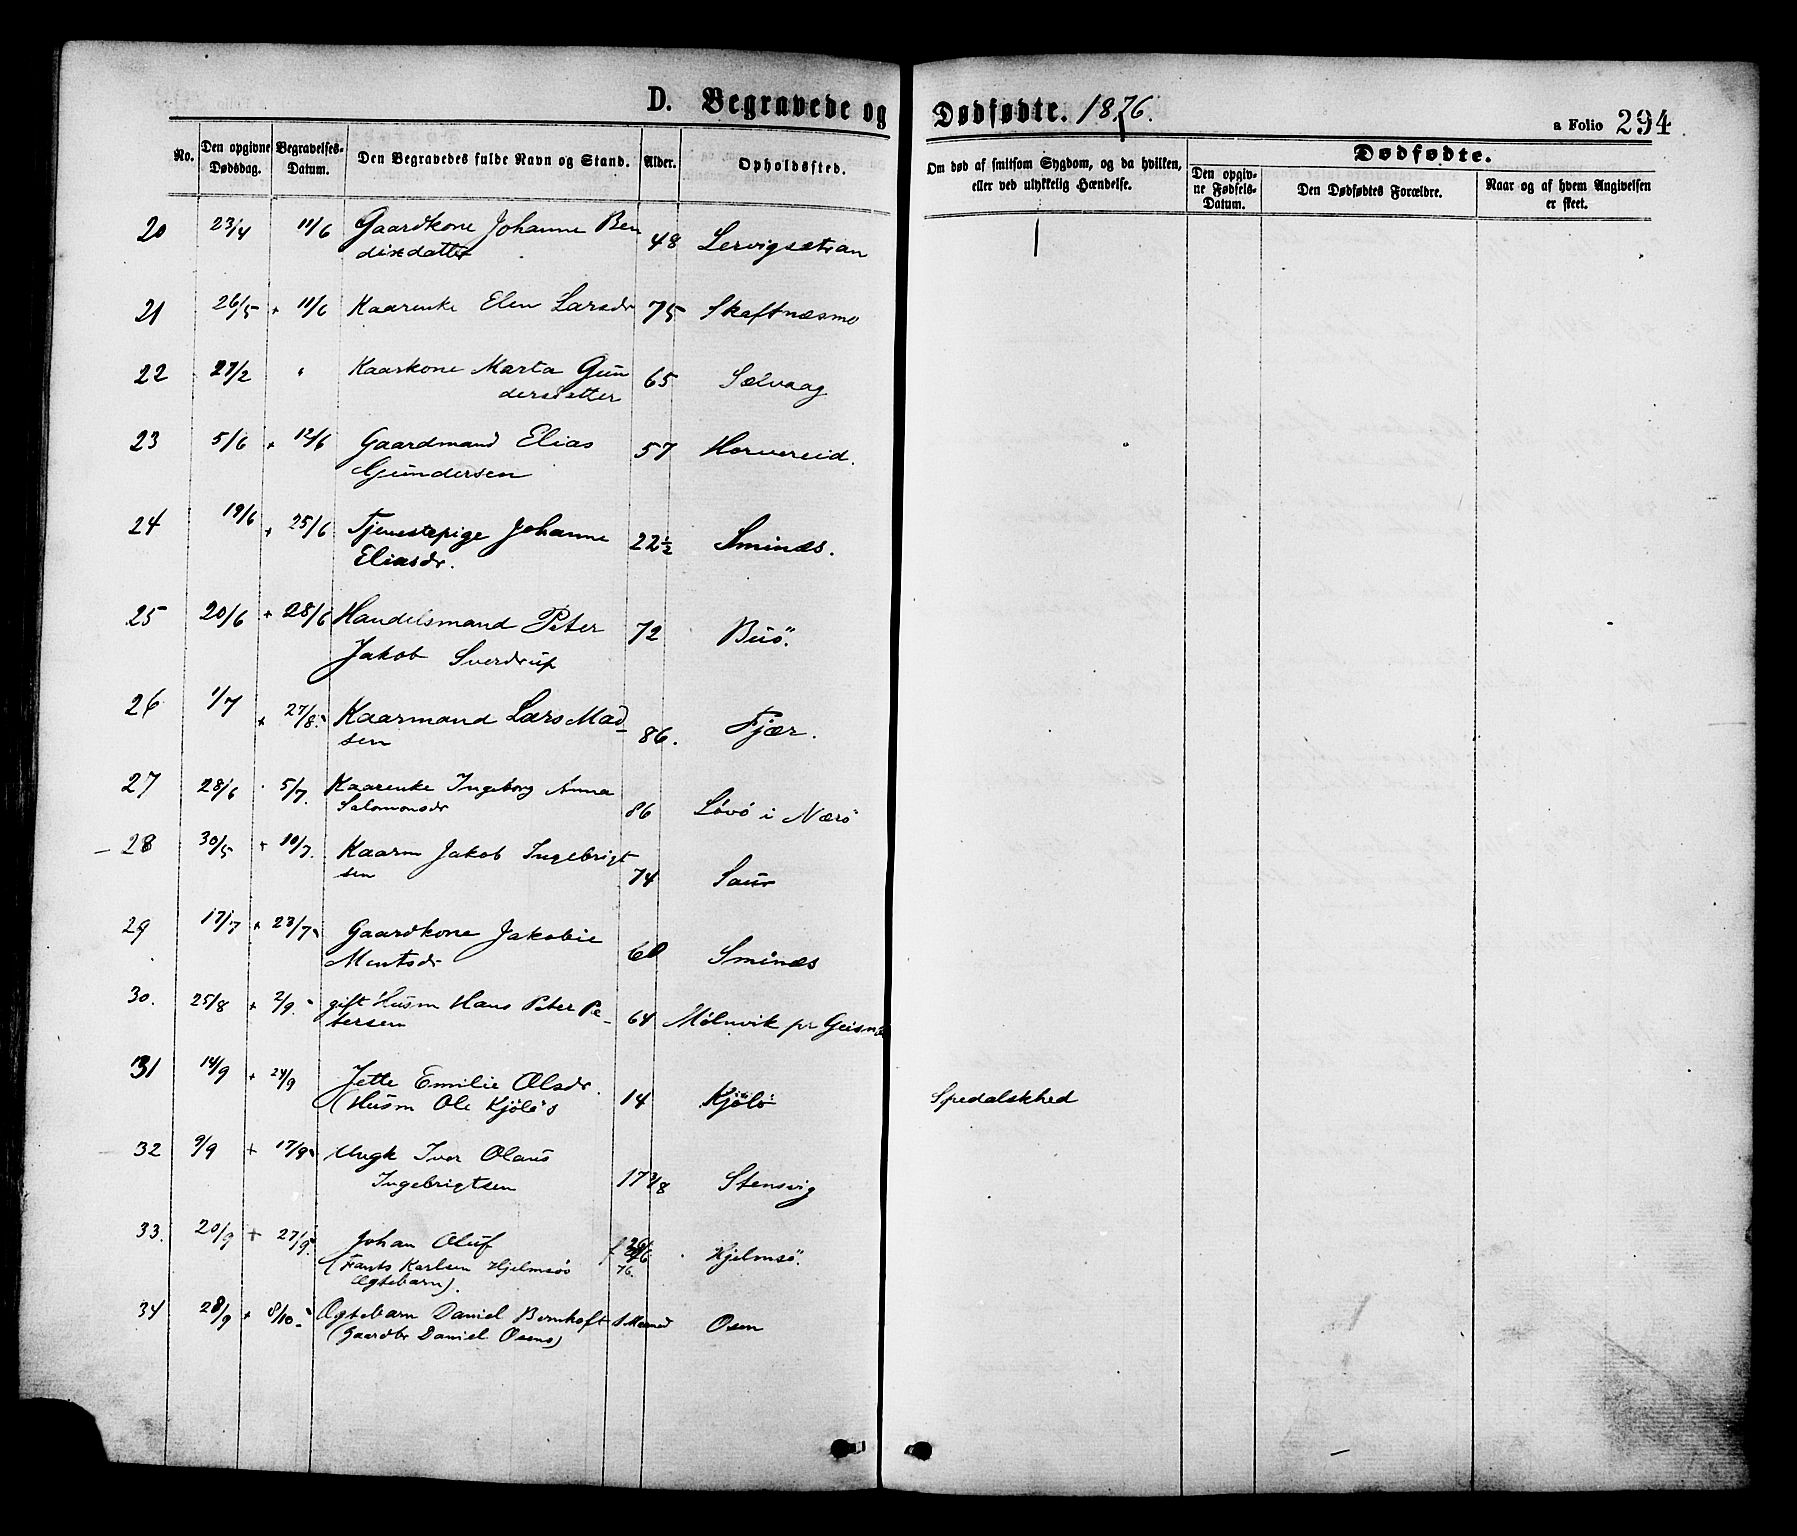 D. Begravede og Dødfødte. 1876.
a Folio 294
No. Den opgivne Dødsdag. Begravelses-Datum. Den Begravedes fulde Navn og Stand. Alder. Opholdssted. Om død af smitsom Sygdom, og da hvilken, eller ved ulykkelig Hændelse. Dødfødte. Den opgivne Fødsels-Datum. Den Dødfødtes Forældre. Naar og af hvem Angivelsen er skeet.
20 23/4 11/6 Gaardkone Johanne Ben 48 Lervigsstran
dixdatter
21 26/5 + 11/6 Kaarenke Elen Larsdr 75 Skaftnæsmo
22 27/2 " Kaarkone Marta Gun 65 Sælvaag
dersdatter
23 5/6 + 12/6 Gaardmand Elias 57 Horvereid.
Gundersen
24 19/6 + 25/6 Tjenestepige Johanne 22½ Sminæs.
Eliasdr.
25 20/6 + 28/6 Handelsmand Peter 72 Buö.
Jakob Sverdrup
26 1/7 + 27/8 Kaarmand Lars Mad- 86. Fjær.
sen
27 28/6 5/7. Kaarenke Ingeborg Anna 86 Lövö i Nærö
Salomonsdr
28 30/5 + 10/7. Kaarm Jakob Ingebrigt 74 Saur
sen
29 17/7 + 23/7 Gaardkone Jakobie 60 Sminæs
Mentsdr
30. 25/8 + 2/9. gift Husm Hans Peter Pe- 64 Mölnvik pr Geisnæs
tersen
31 14/9 + 24/9 Jette Emilie Olsdr. 14 Kjölö Spedalskhed
(Husm Ole Kjölös
32 9/9 + 17/9 Ungk Iver Olaus 17 3/8 Stensvig
Ingebrigtsen
33. 20/9 + 27/9. Johan Oluf f 26/6 76. Hjelmsö.
(Fants Karlsen Hjelmsös
Ægtebarn).
34 28/9 + 8/10 Ægtebarn Daniel Bernhoft 8 Maaned Osen
(Gaardbr Daniel Osens)